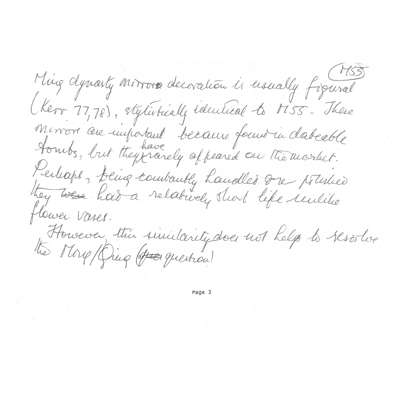 M55
Ming dynasty mirror decoration is usually figural
(Kerr 77, 78), stylistically identical to M55. These
mirrors are important because found in dateable
tombs, but they have rarely appeared on the market.
Perhaps, being constantly handled and polished
they were had a relatively short life unlike
flower vases.
However, this similarity does not help to resolve
the Ming/Qing question!
Page 3